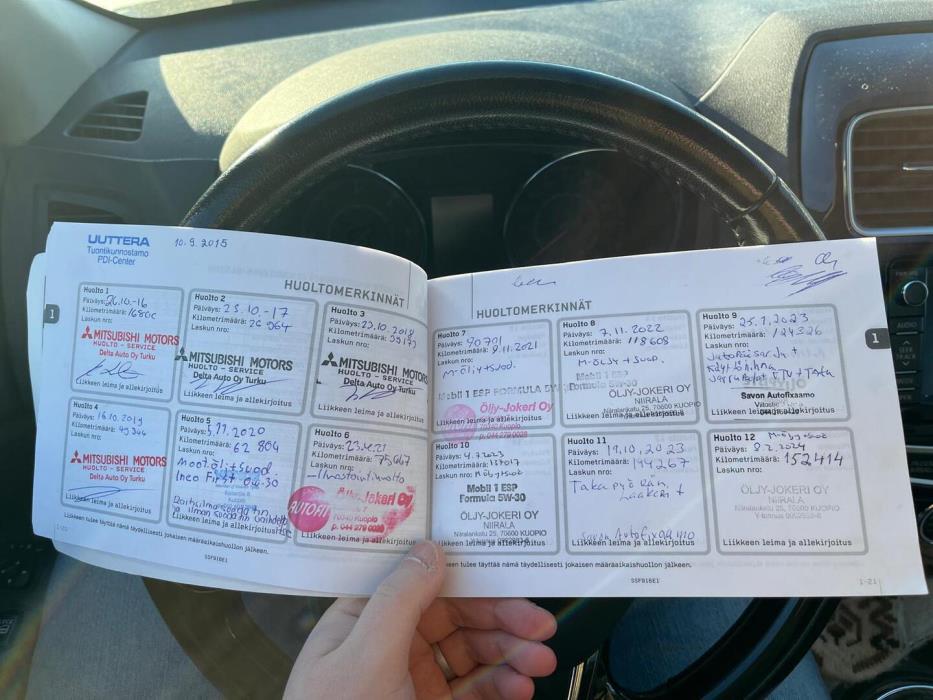 UUTTERA
Tuontikunnostamo
PDI-Center
10.9.2015
HUOLTOMERKINNÄT
1
Huolto 1
Päiväys: 26.10.-16
Kilometrimäärä: 16800
Laskun nro:
MITSUBISHI MOTORS
HUOLTO - SERVICE
Delta Auto Oy Turku
Liikkeen leima ja allekirjoitus
Huolto 2
Päiväys: 25.10.-17
Kilometrimäärä: 26964
Laskun nro:
MITSUBISHI MOTORS
HUOLTO - SERVICE
Delta Auto Oy Turku
Liikkeen leima ja allekirjoitus
Huolto 3
Päiväys: 23.10.2018
Kilometrimäärä:
Laskun nro:
MITSUBISHI MOTORS
HUOLTO - SERVICE
Delta Auto Oy Turku
Liikkeen leima ja allekirjoitus
Huolto 4
Päiväys: 16.10.2019
Kilometrimäärä:
Laskun nro:
MITSUBISHI MOTORS
HUOLTO - SERVICE
Delta Auto Oy Turku
Liikkeen leima ja allekirjoitus
Huolto 5
Päiväys: 5.11.2020
Kilometrimäärä: 62 804
Laskun nro:
Moot.öljy+suod.
Ineo First 0w-30
Raitisilmasuodatin
ja ilmansuodatin
Liikkeen leima ja allekirjoitus
Huolto 6
Päiväys:
Kilometrimäärä:
Laskun nro:
-Ilmastointihuolto
AUTOFIT
Öljy-Jokeri Oy
70340 Kuopio
p. 044 279 0028
Liikkeen leima ja allekirjoitus
Liikkeen tulee täyttää nämä täydellisesti jokaisen määräaikaishuollon jälkeen.
SSFB16E1
HUOLTOMERKINNÄT
1
Huolto 7
Päiväys: 90701
Kilometrimäärä: 9.11.2021
Laskun nro:
M-öljy+suod.
Mobil 1 ESP FORMULA 5W-30
Öljy-Jokeri Oy
p. 044 279 0028
Liikkeen leima ja allekirjoitus
Huolto 8
Päiväys: 7.11.2022
Kilometrimäärä: 118608
Laskun nro:
M-öljy+suod.
Mobil 1 ESP
Formula 5W-30
ÖLJY-JOKERI OY
NIIRALA
Niiralankatu 25, 70600 KUOPIO
Liikkeen leima ja allekirjoitus
Huolto 9
Päiväys: 25.1.2023
Kilometrimäärä: 124326
Laskun nro:
Jakopääsarja +
Käyttöhihna
Jarrupalat ETU + Taka
Savon Autofixaamo
Liikkeen leima ja allekirjoitus
Huolto 10
Päiväys: 4.7.2023
Kilometrimäärä:
Laskun nro: M-öljy+suod
Mobil 1 ESP
Formula 5W-30
ÖLJY-JOKERI OY
NIIRALA
Niiralankatu 25, 70600 KUOPIO
Liikkeen leima ja allekirjoitus
Huolto 11
Päiväys: 19.10.2023
Kilometrimäärä: 144267
Laskun nro:
Takapyörän
laakerit
Savon Autofixaamo
Liikkeen leima ja allekirjoitus
Huolto 12
M-öljy+suod
Päiväys: 8.2.2024
Kilometrimäärä: 152414
Laskun nro:
ÖLJY-JOKERI OY
NIIRALA
Niiralankatu 25, 70600 KUOPIO
Liikkeen leima ja allekirjoitus
Liikkeen tulee täyttää nämä täydellisesti jokaisen määräaikaishuollon jälkeen.
SSFB16E1
1-21
AUDIO
SEEK
TRACK